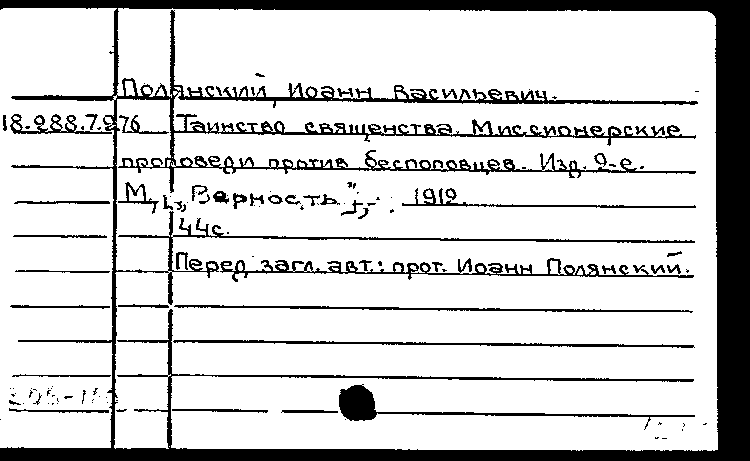 Полянский, Иоанн Васильевич.
18.288.7.276 Таинство священства. Миссионерские
проповеди против беспоповцев. Изд. 2-е.
М., "Верность", 1912.
44с.
Перед загл. авт.: прот. Иоанн Полянский.